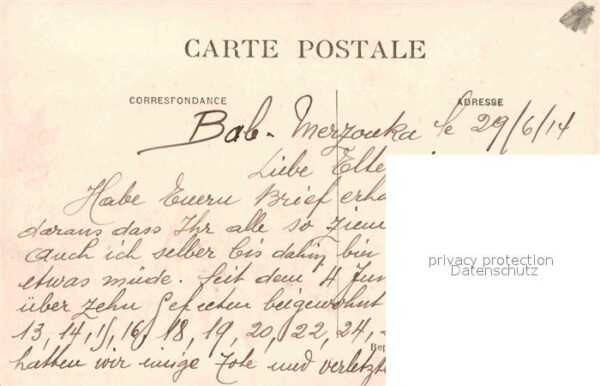 CARTE POSTALE
CORRESPONDANCE
ADRESSE
Bab-Merzouka le 29/6/14
Liebe Elte
Habe Euern Brief erha
daraus dass Ihr alle so ziem
auch ich selber bis dahin bin
etwas müde. Seit dem 4 Jun
über zehn Gefechten beigewohnt
13, 14, 15, 16, 18, 19, 20, 22, 24,
hatten wir einige Tote und verletzte
Rep
privacy protection
Datenschutz